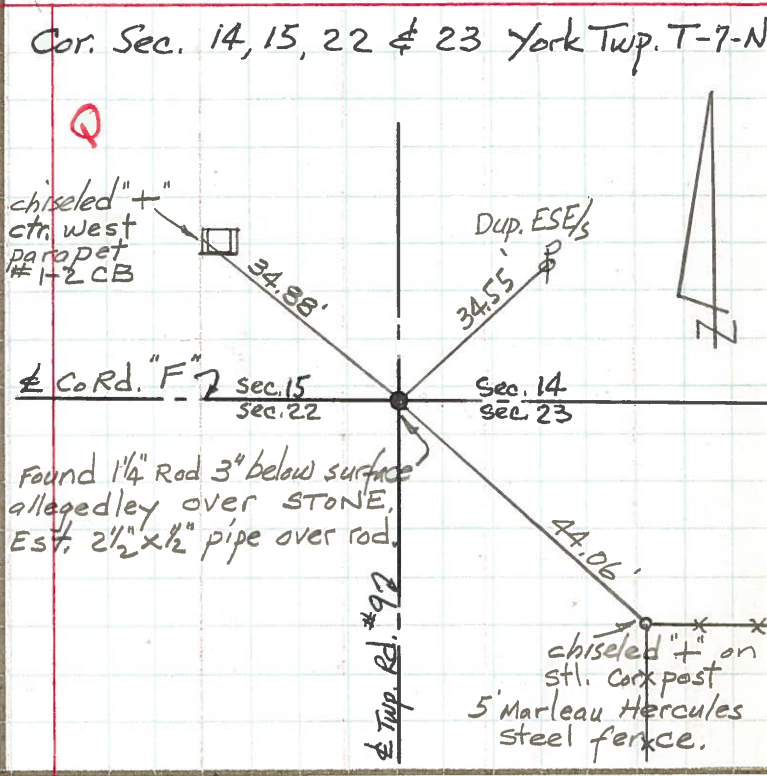 Cor. Sec. 14, 15, 22 & 23 York Twp. T-7-N
Q
chiseled "+"
ctr. west
parapet
#1-2 CB
34.88'
Dup. ESE/s
34.55'
N
℄ Co Rd. "F"
Sec. 15
Sec. 22
Sec. 14
Sec. 23
Found 1¼" Rod 3" below surface
allegedley over STONE.
Est. 2½" x ½" pipe over rod.
44.06'
℄ Twp. Rd. #9
chiseled "+" on
stl. Cor post
5' Marleau Hercules
steel fence.